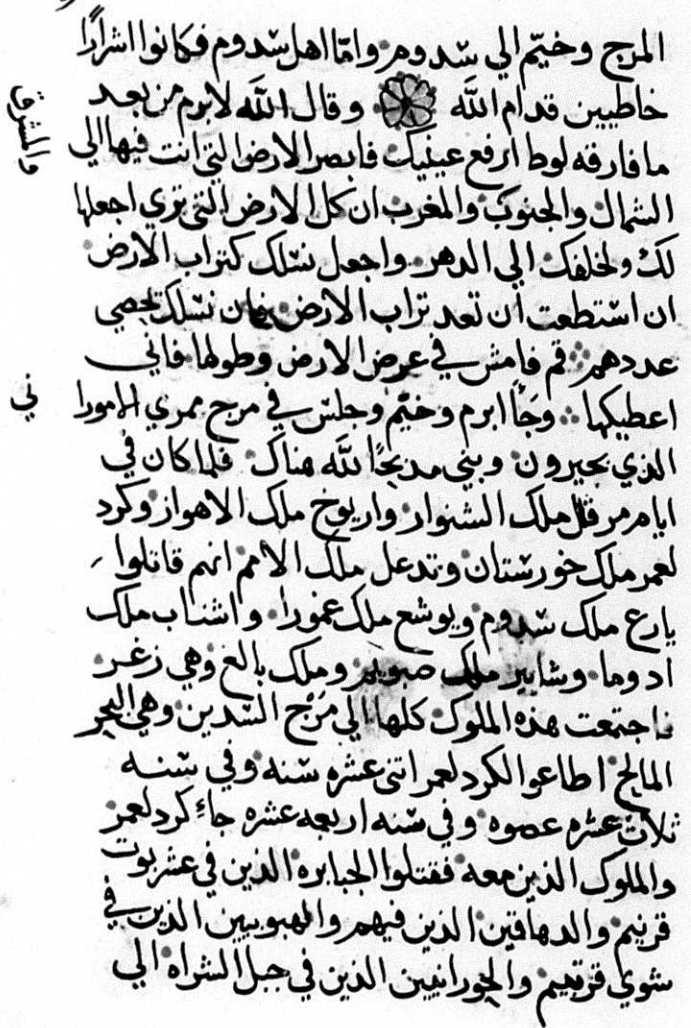 المرج وخيّم الي سدوم وامّا اهل سدوم فكانوا اشرارًا
خاطيين قدام الله وقال الله لابرم من بعد
ما فارقه لوط ارفع عينيك فابصر الارض التي انت فيها الي
والمشرق
الشمال والجنوب والمغرب ان كل الارض التي تري اجعلها
لك ولخلفك الي الدهر واجعل نسلك كتراب الارض
ان استطعت ان تعد تراب الارض فان نسلك تحصي
عددهم قم فامش في عرض الارض وطولها فاني
اعطيكها وجًا ابرم وخيّم وجلس في مرج ممري الامورا
ني
الذي بحيرون وبني مدبحًا لله هناك فلما كان في
ايام مرفل ملك الشنوار واريوخ ملك الاهواز وكرد
لعمر ملك خورستان وتدعل ملك الامم انهم قاتلوا
يارع ملك سدوم ويوشع ملك عمورا واشناب ملك
ادوما وشابير ملك صبويم وملك بالع وهي زغر
فاجتمعت هذه الملوك كلها الي مرج السدين وهي البحر
المالح اطاعوا لكرد لعمر اتني عشره سنه وفي سنه
ثلاث عشره عصوه وفي سنه اربعه عشره جاء كرد لعمر
والملوك الذين معه فقتلوا الجبابره الذين في عشربوت
قرنيم والدهاقين الذين فيهم والهبويين الذين في
شوي قرتيم والحورانيين الذين في جبل الشراه الي